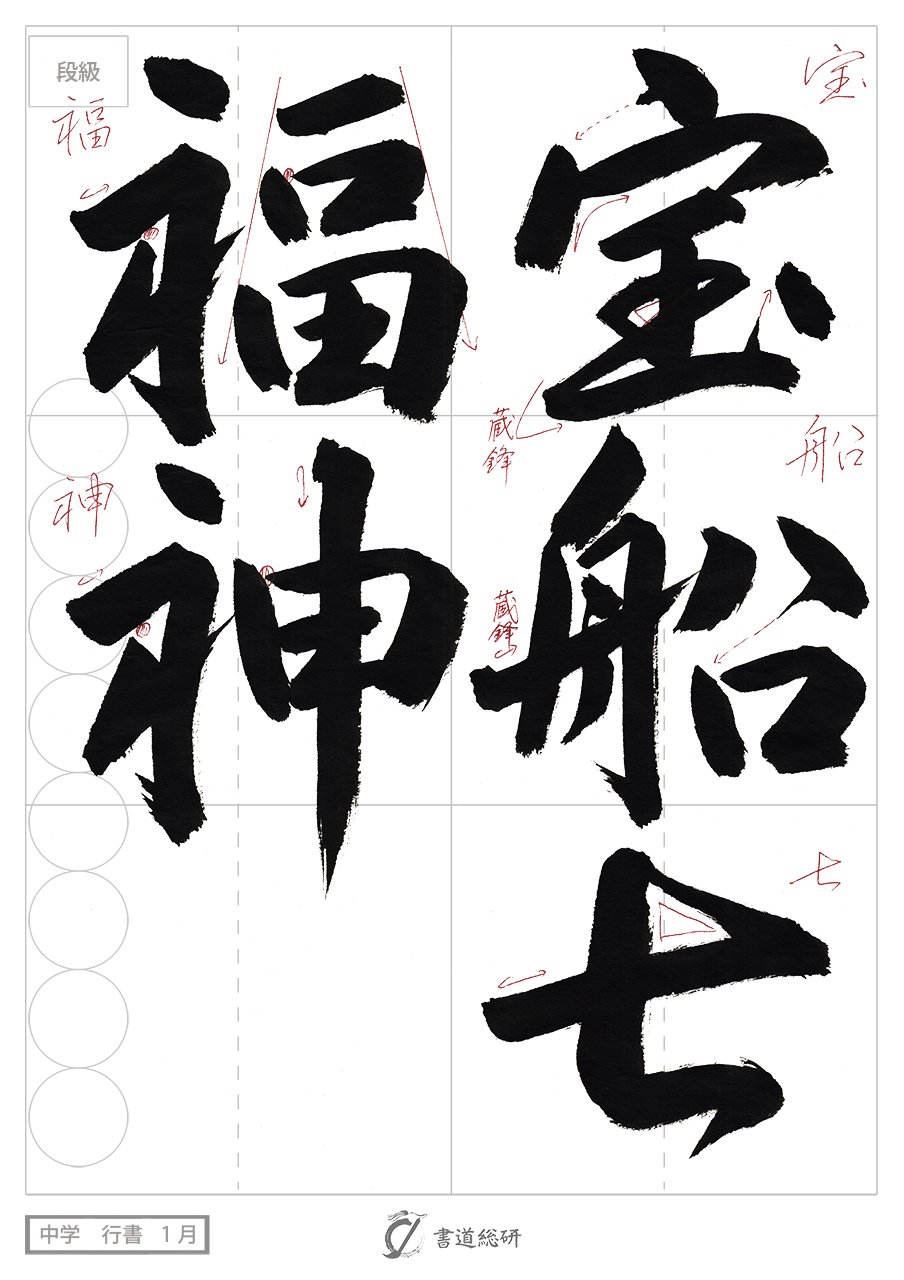 宝船七
福神
宝
船
七
段級
福
神
蔵鋒
蔵鋒
中学 行書 1月
書道総研